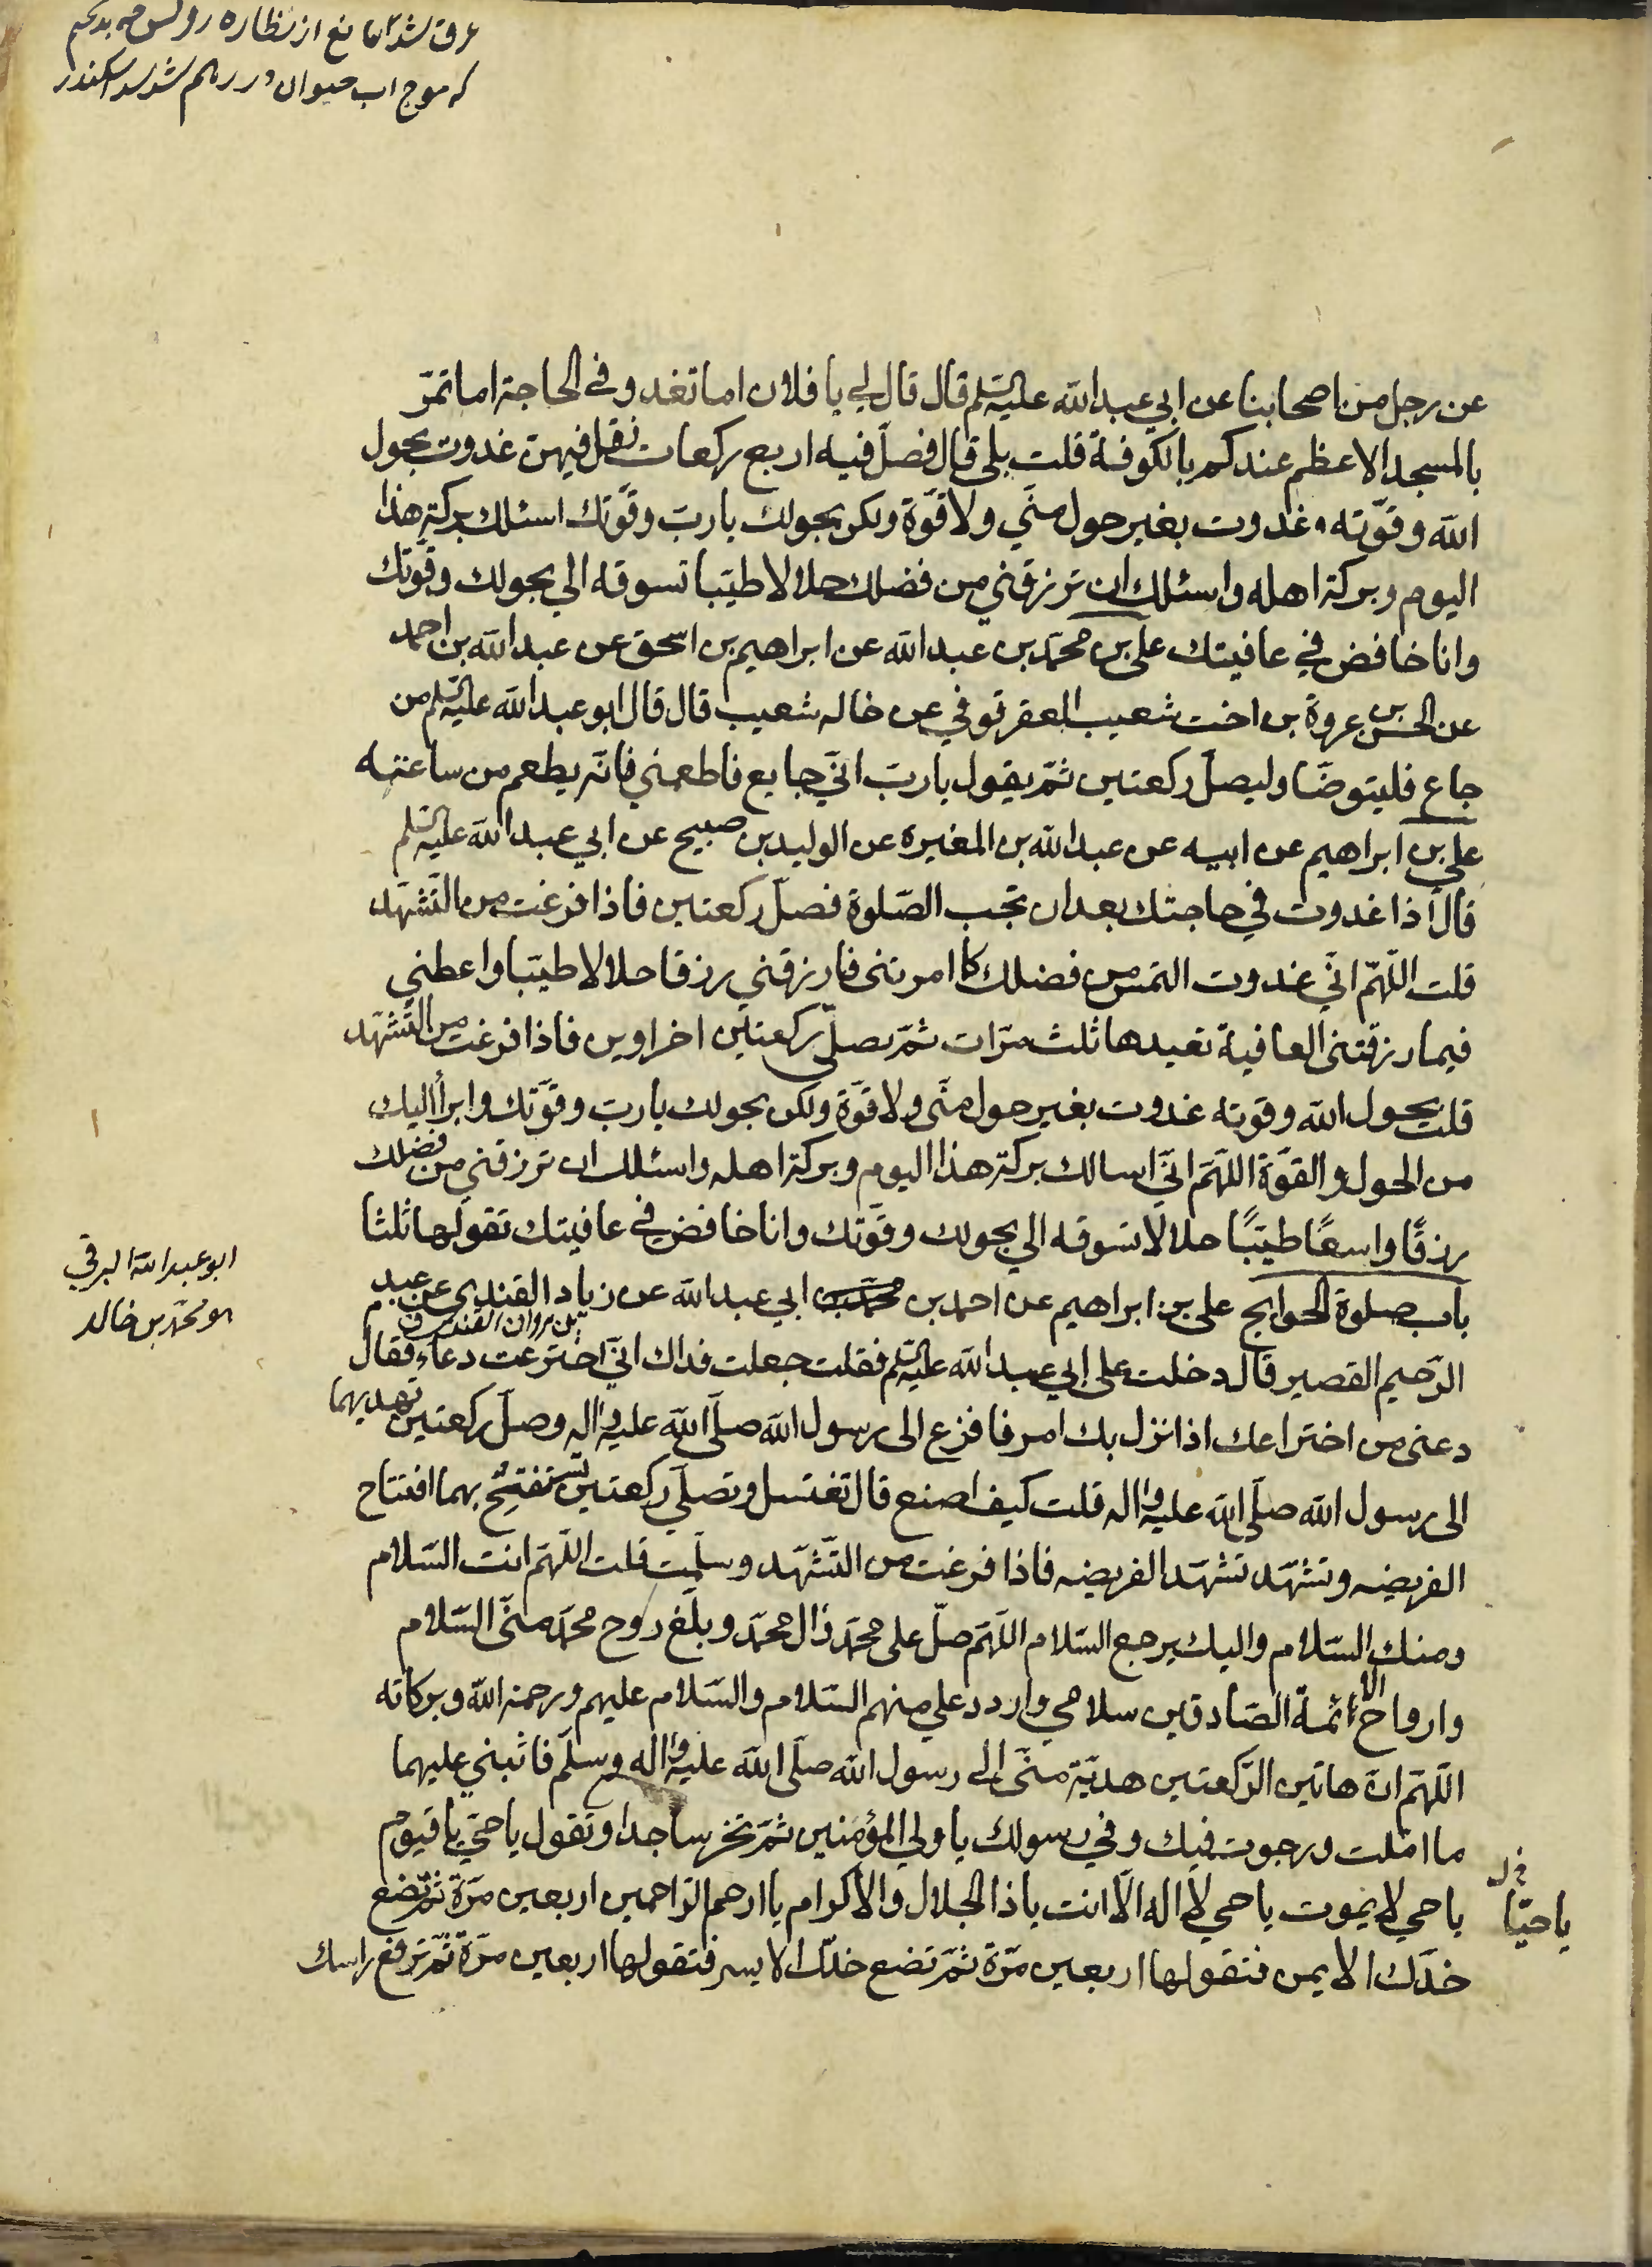 عرق شد مانع از نظاره روئس
که موج اب حیوان در رهم شد سد اسکندر
عن رجل من اصحابنا عن ابي عبد الله عليه السلم قال قال لي يا فلان اما تغدو في الحاجة اما تمرّ
بالمسجد الاعظم عندكم بالكوفة قلت بلى قال فصلّ فيه اربع ركعات تقل فيهن غدوت بحول
الله وقوّته غدوت بغير حول منّي ولا قوّة ولكن بحولك يا ربّ وقوّتك اسئلك بركة هذا
اليوم وبركة اهله واسئلك ان ترزقني من فضلك حلالا طيّبا تسوقه الي بحولك وقوّتك
وانا خافض في عافيتك علي بن محمّد بن عبد الله عن ابراهيم بن اسحق عن عبد الله بن احمد
عن الحسن بن عروة بن اخت شعيب العقرقوفي عن خاله شعيب قال قال ابو عبد الله عليه السلم من
جاع فليتوضّا وليصلّ ركعتين ثمّ يقول يا ربّ انّي جايع فاطعمني فانّه يطعم من ساعته
علي بن ابراهيم عن ابيه عن عبد الله بن المغيرة عن الوليد بن صبيح عن ابي عبد الله عليه السلم
قال اذا غدوت في حاجتك بعد ان تجب الصّلوة فصلّ ركعتين فاذا فرغت من التّشهّد
قلت اللّهمّ انّي غدوت التمس من فضلك كما امرتني فارزقني رزقا حلالا طيّبا واعطني
فيما رزقتني العافية تعيدها ثلث مرّات ثمّ تصلّي ركعتين اخراوين فاذا فرغت من التّشهّد
قلت بحول الله وقوته غدوت بغير حول منّي ولا قوّة ولكن بحولك يا ربّ وقوّتك وابرأ اليك
من الحول والقوّة اللّهمّ انّي اسالك بركة هذا اليوم وبركة اهله واسئلك ان ترزقني من فضلك
رزقًا واسعًا طيّبًا حلالا تسوقه الي بحولك وقوّتك وانا خافض في عافيتك تقولها ثلثا
باب صلوة الحوايج علي بن ابراهيم عن احمد بن محمّد بن ابي عبد الله عن زياد القندي عن عبد
بن مروان القندي ق
الرّحيم القصير قال دخلت على ابي عبد الله عليه السلم فقلت جعلت فداك انّي اخترعت دعاء فقال
دعني من اختراعك اذا نزل بك امر فافزع الى رسول الله صلّى الله عليه واله وصلّ ركعتين تهديهما
الى رسول الله صلّى الله عليه واله قلت كيف اصنع قال تغتسل وتصلّي ركعتين تستفتح بهما افتتاح
الفريضه وتشهّد تشهّد الفريضه فاذا فرغت من التّشهّد وسلّمت قلت اللّهمّ انت السّلام
ومنك السّلام واليك يرجع السّلام اللّهمّ صلّ على محمّد وال محمّد وبلّغ روح محمّد منّي السّلام
وارواح الائمّة الصّادقين سلامي واردد علي منهم السّلام والسّلام عليهم ورحمة الله وبركاته
اللّهمّ انّ هاتين الرّكعتين هديّة منّي الى رسول الله صلّى الله عليه واله وسلّم فاثبني عليهما
ما امّلت ورجوت فيك وفي رسولك يا ولي المؤمنين ثمّ تخرّ ساجدا وتقول يا حيّ يا قيّوم
يا حي لا يموت يا حي لا اله الّا انت يا ذا الجلال والاكرام يا ارحم الرّاحمين اربعين مرّة ثمّ تضع
خدّك الايمن فتقولها اربعين مرّة ثمّ تضع خدّك الايسر فتقولها اربعين مرّة ثمّ ترفع راسك
ابو عبد الله البرقي
هو محمّد بن خالد
يا حيّا